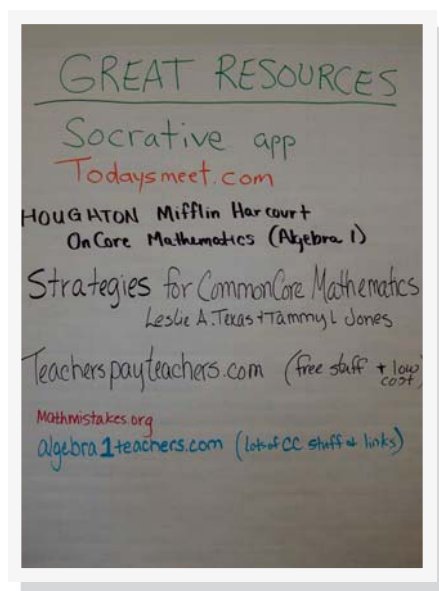 GREAT RESOURCES
Socrative app
Todaysmeet.com
HOUGHTON Mifflin Harcourt
OnCore Mathematics (Algebra 1)
Strategies for CommonCore Mathematics
Leslie A. Texas + Tammy L Jones
Teacherspayteachers.com (free stuff + low
cost)
Mathmistakes.org
algebra1teachers.com (lots of CC stuff + links)